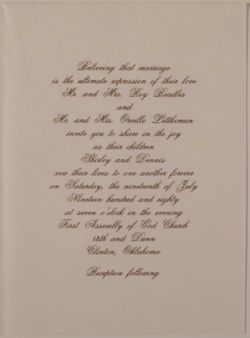 Believing that marriage
is the ultimate expression of their love
Mr. and Mrs. Roy Beadles
and
Mr. and Mrs. Orville
invite you to share in the joy
as their children
Shirley and Dennis
vow their lives to one another forever
on Saturday, the nineteenth of July
Nineteen hundred and eighty
at seven o'clock in the evening
First Assembly of God Church
and Dunn
Clinton, Oklahoma
Reception following